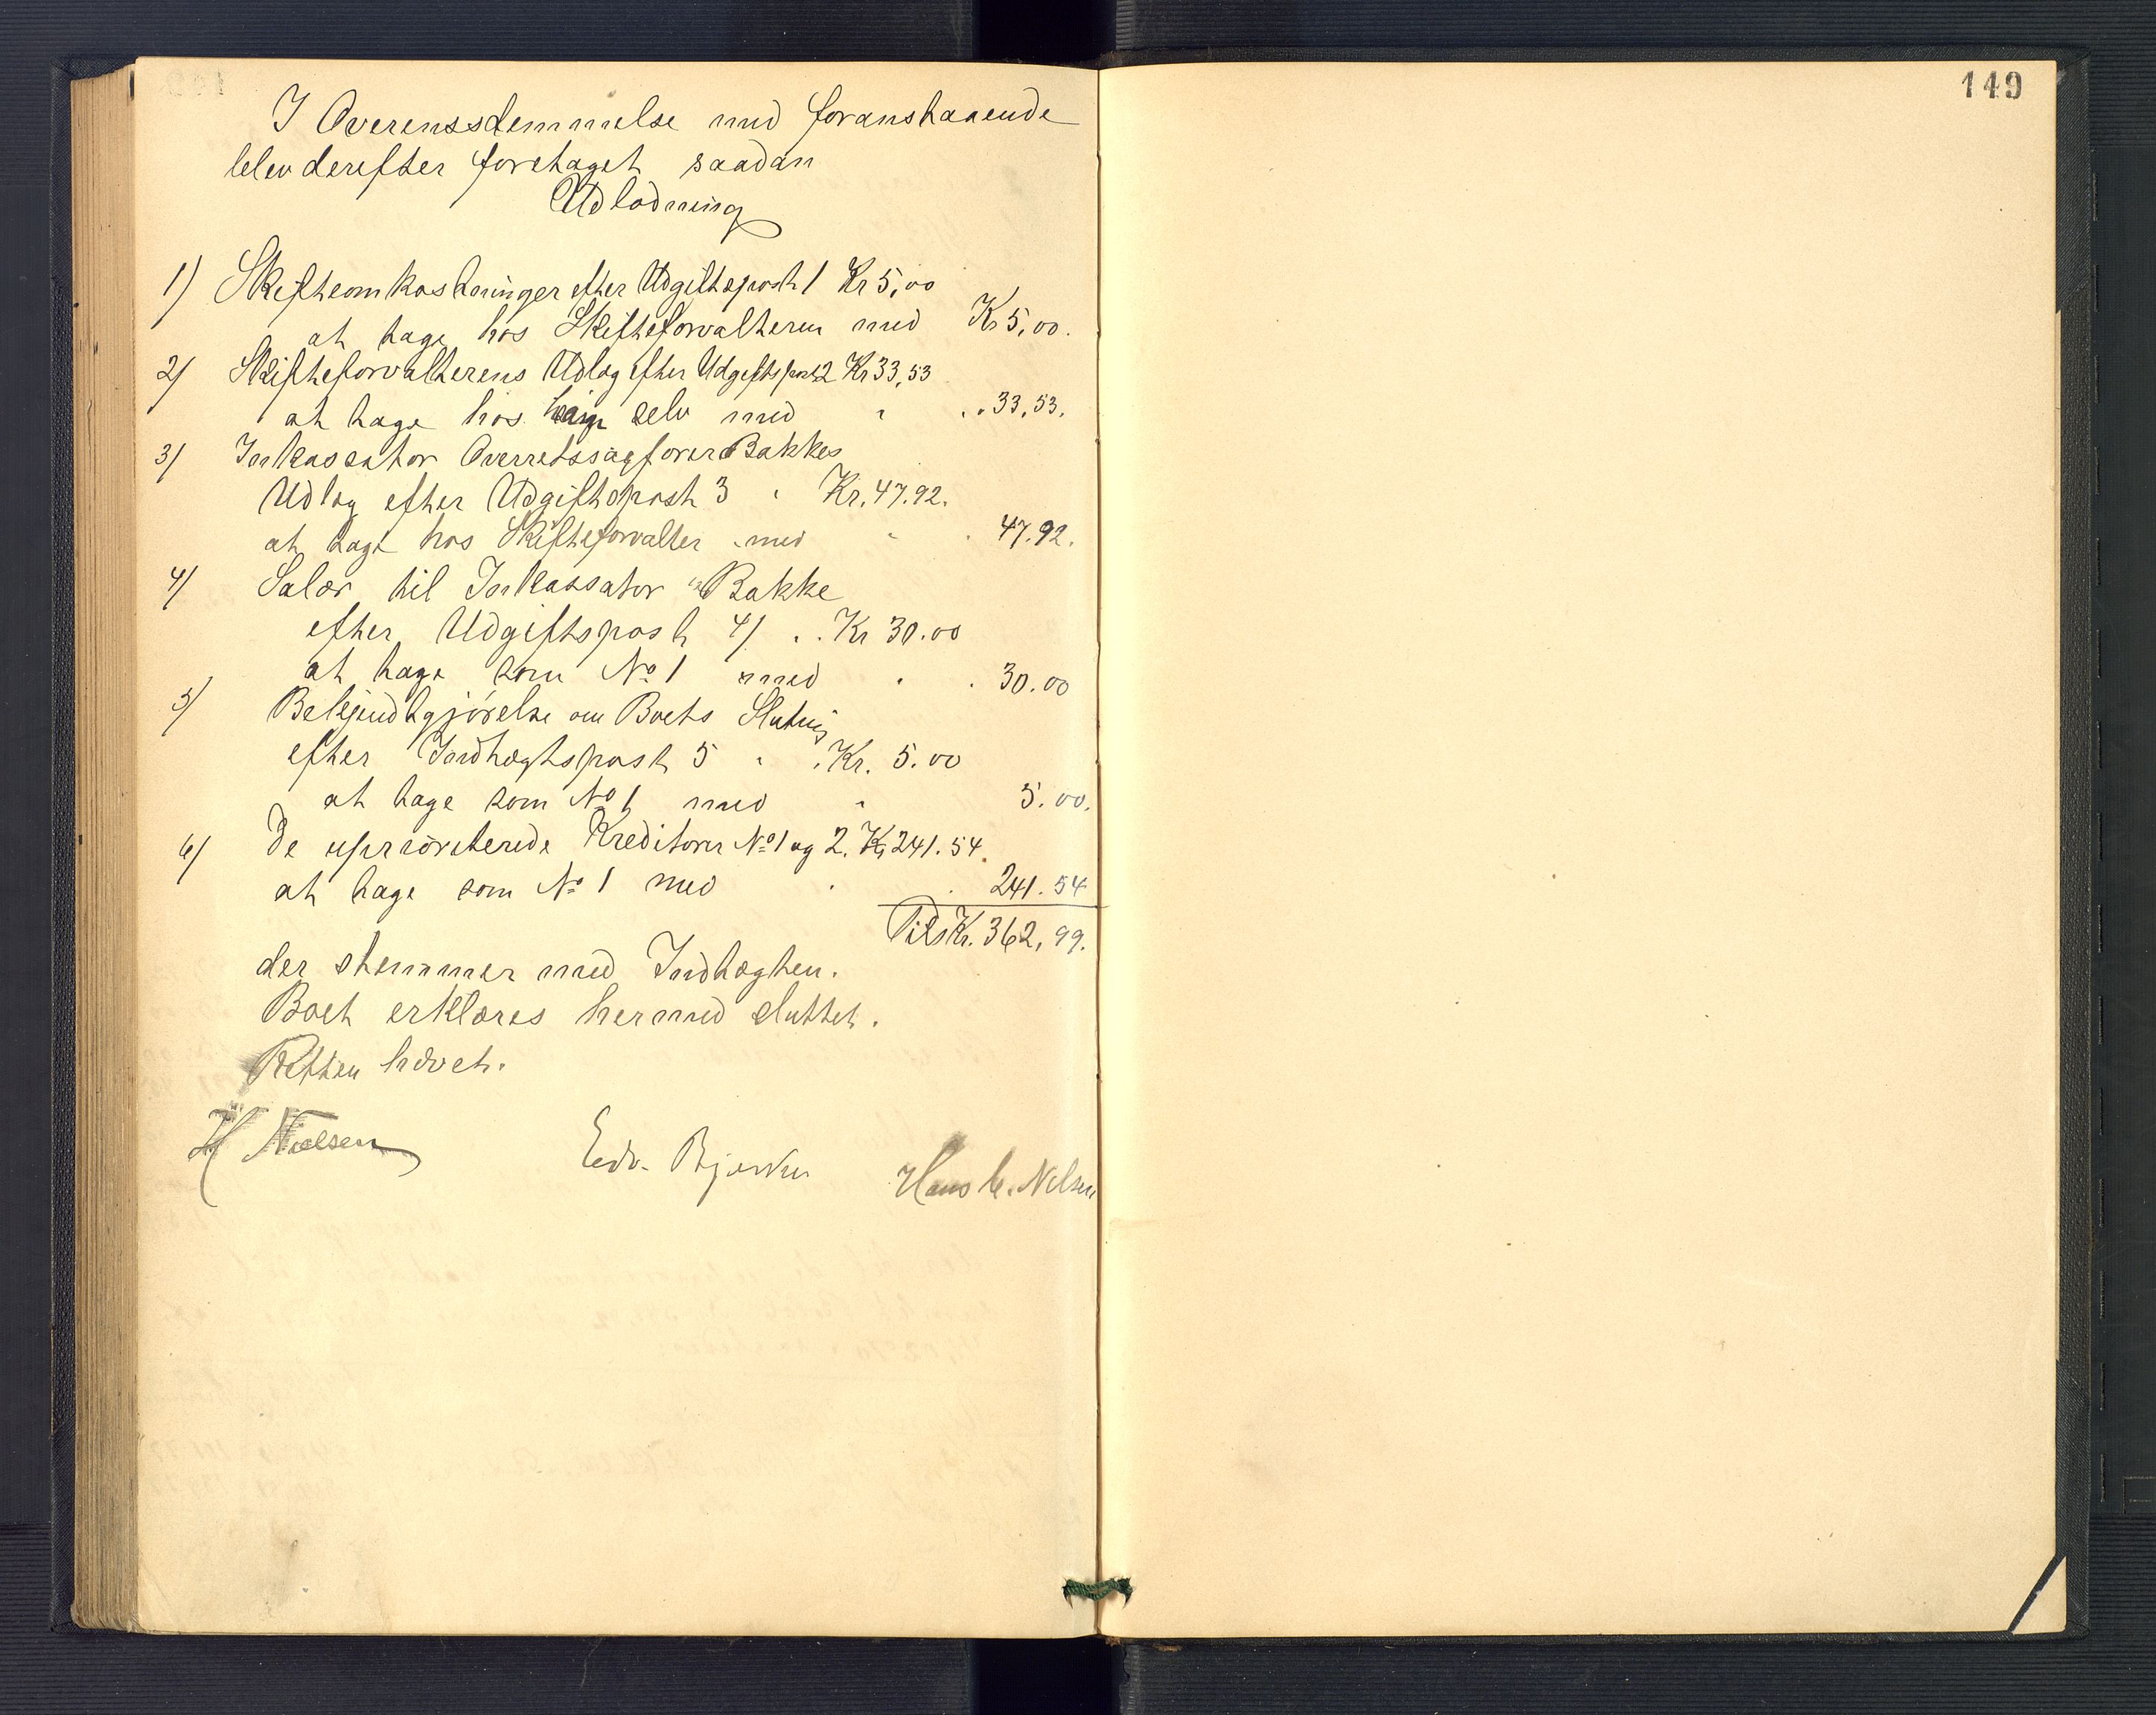 149
I Overensstemmelse med foranstaaende
blev derefter foretaget saadan
Udlodning
1) Skifteomkostninger efter Udgiftspost 1 Kr 5,00
at tage hos Skifteforvalteren med Kr 5,00.
2) Skifteforvalterens Udlæg efter Udgiftspost 2 Kr 33,53
at tage hos ham selv med " . 33,53.
3) Inkassator Overretssagfører Bakkes
Udlæg efter Udgiftspost 3 " Kr. 47.92.
at tage hos Skifteforvalter med " . 47.92.
4) Salær til Inkassator Bakke
efter Udgiftspost 4) . . Kr 30.00
at tage som No 1 med . . 30.00
5) Bekjendtgjørelse om Boets Slutning
efter Indtægtspost 5 " . Kr. 5.00
at tage som No 1 med " 5.00.
6) De upriøriterede Kreditorer No 1 og 2. Kr 241.54.
at tage som No 1 med . . 241.54
Tils Kr. 362,99.
der stemmer med Indtægten.
Boet erklæres hermed sluttet.
Retten hævet.
H Nielsen Edv. Bjerke Hans C. Nilsen